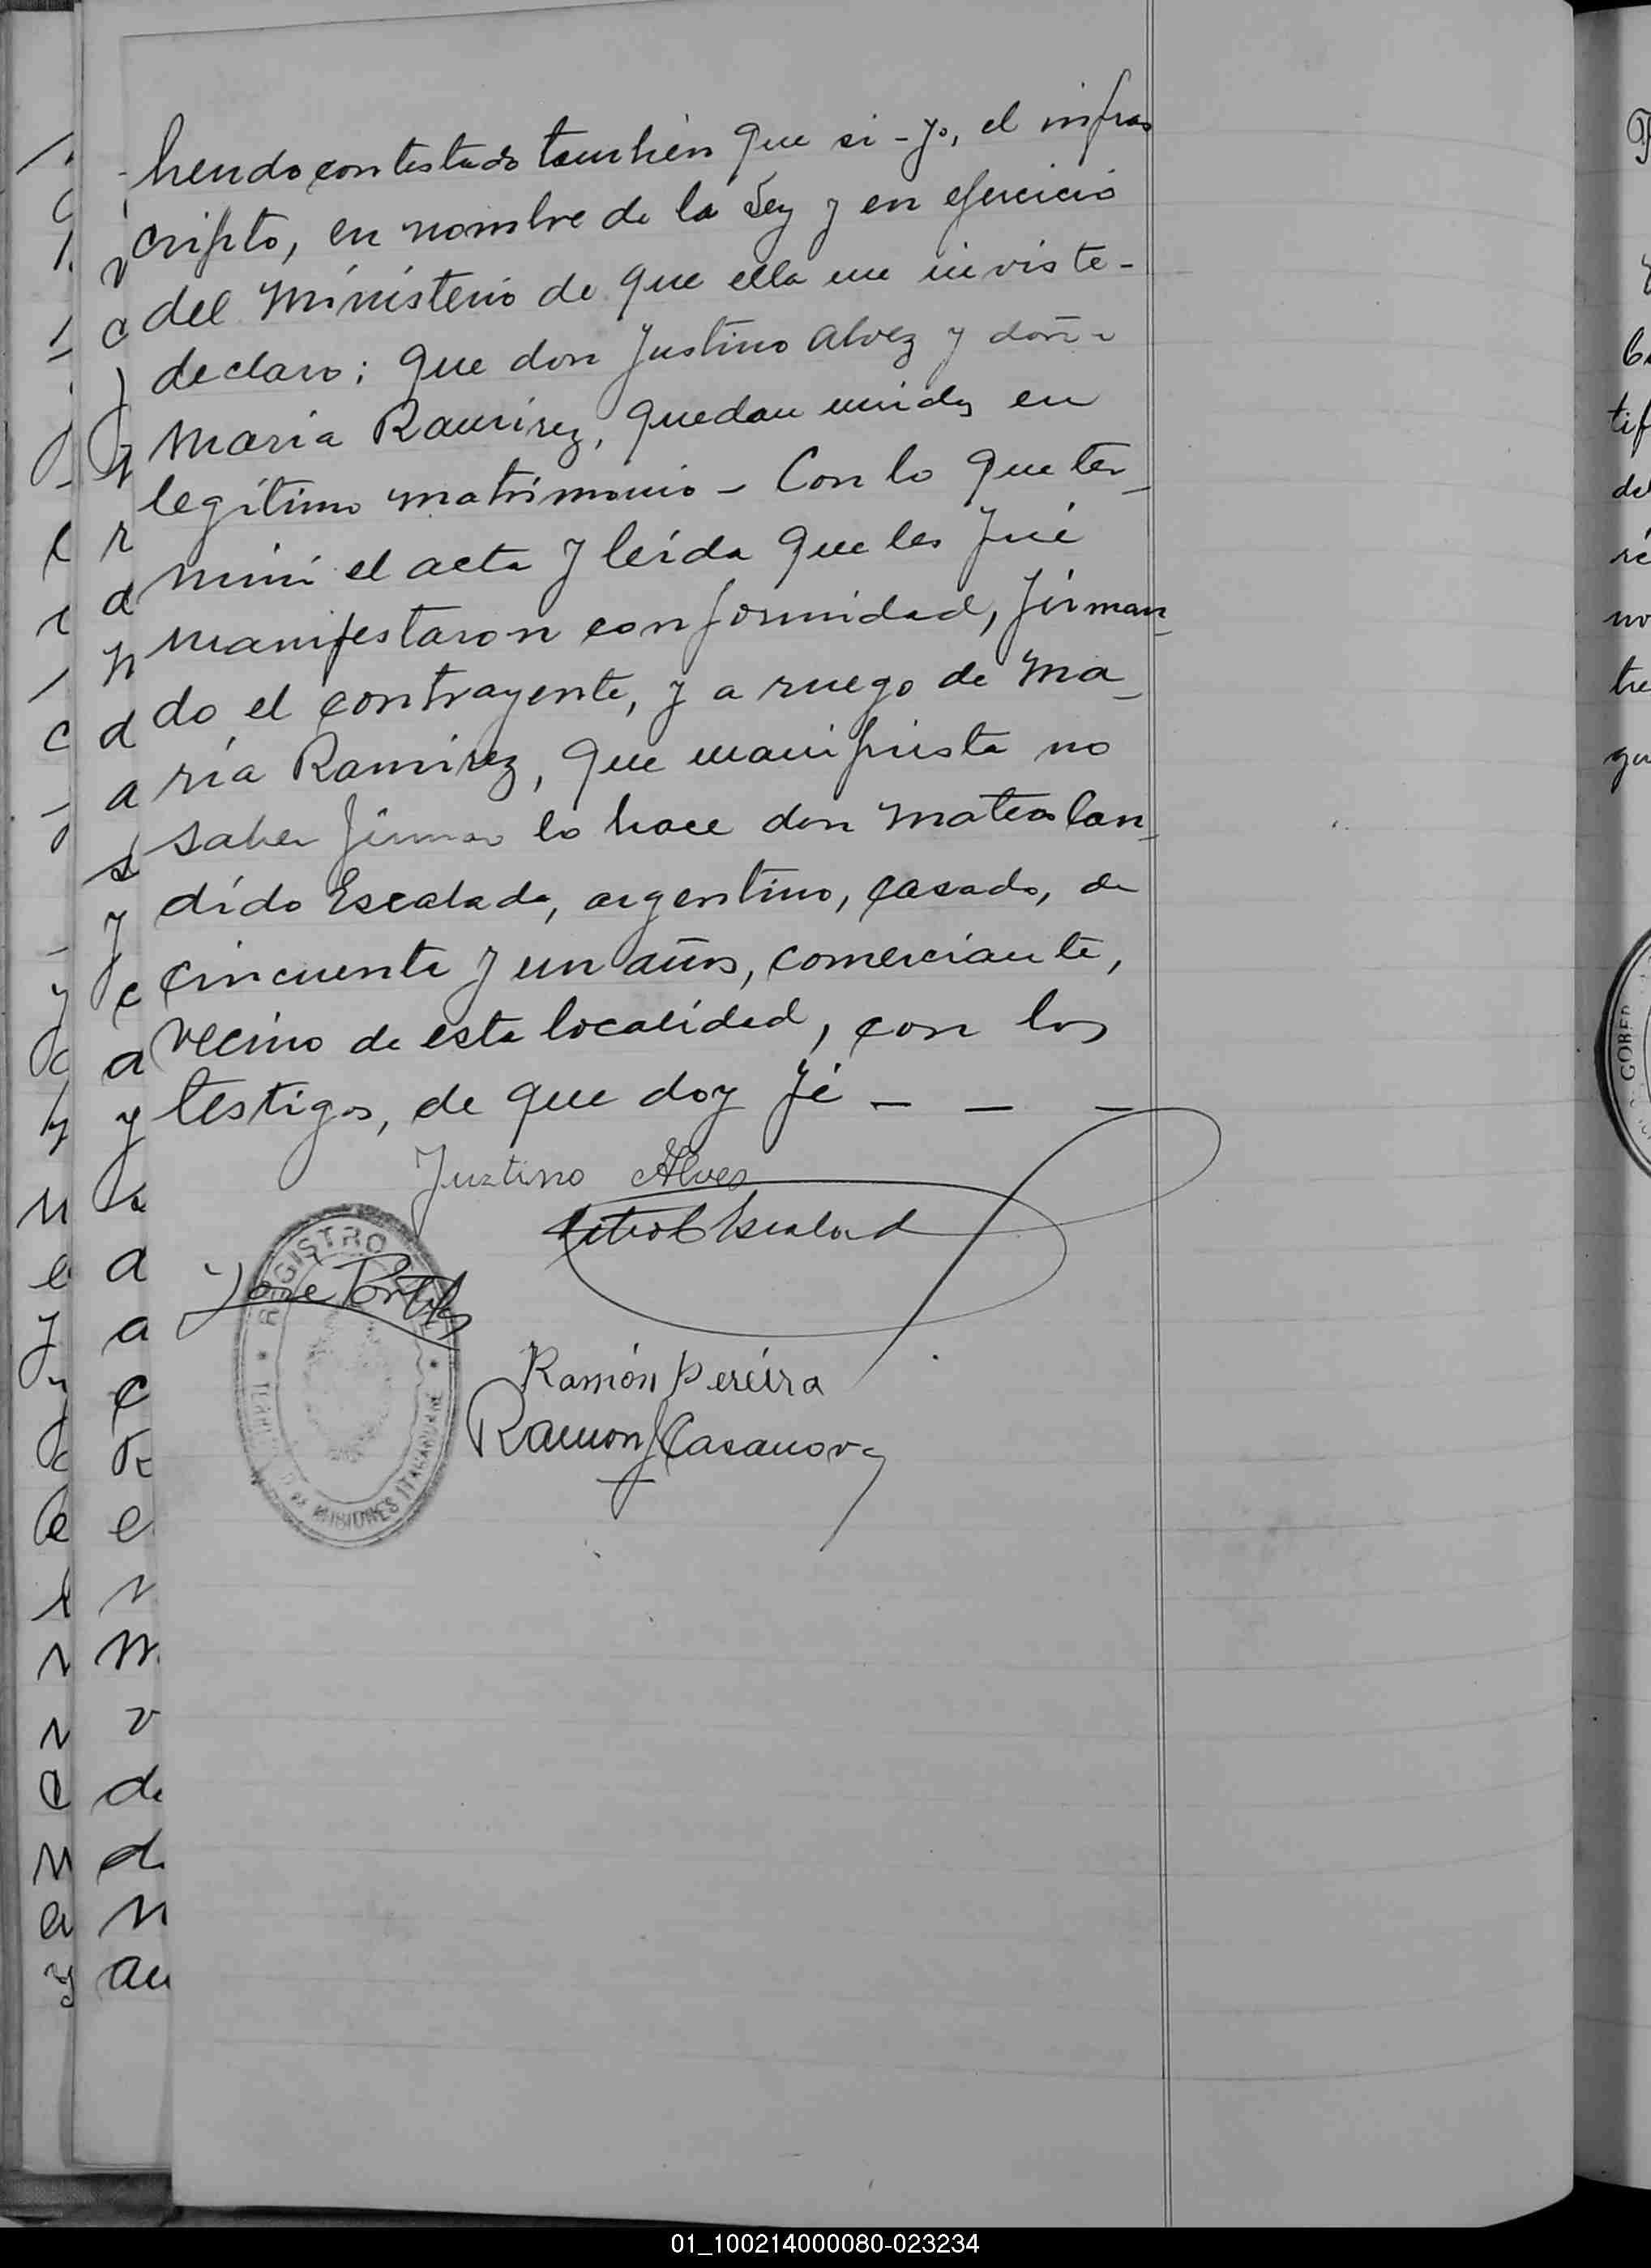 biendo contestado también que si - yo, el infras
cripto, en nombre de la Ley y en ejercicio
del Ministerio de que ella me inviste -
declaro; que don Justino Alvez y doña
Maria Ramirez, quedan unidos en
legítimo matrimonio - Con lo que ter_
minó el acta y leída que les fué
manifestaron conformidad, firman_
do el contrayente, y a ruego de Ma_
ría Ramirez, que manifiesta no
saber firmar lo hace don Mateo Can_
dído Escalada, argentino, casado, de
cincuenta y un años, comerciante,
vecino de esta localidad, con los
testigos, de que doy fé _ _ _
Juztino Alves
Escalad
José
REGISTRO
Ramón Pereira
Ramon Casanova
MISIONES ITACARUARE
GOBER
01_100214000080-023234